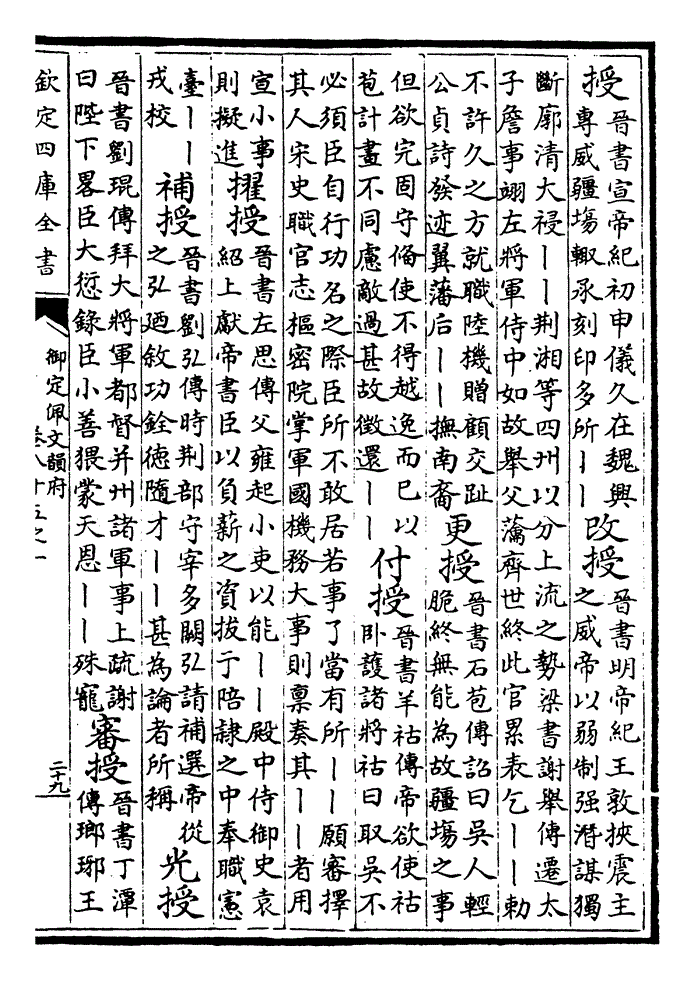 授晉書宣帝紀初申儀久在魏興專威疆場輙承刻印多所丨丨改授晉書明帝紀王敦挾震主之威帝以弱制强潛謀獨
斷廓清大祲丨丨荆湘等四州以分上流之勢梁書謝舉傳遷太
子詹事翊左將軍侍中如故舉父瀹齊世終此官累表乞丨丨勅
不許久之方就職陸機贈顧交趾公貞詩發迹翼藩后丨丨撫南裔更授晉書石苞傳詔曰吳人輕脆終無能為故疆場之事
但欲完固守備使不得越逸而已以苞計畫不同慮敵過甚故徵還丨丨付授晉書羊祜傳帝欲使祜卧護諸將祜曰取吳不
必須臣自行功名之際臣所不敢居若事了當有所丨丨願審擇
其人宋史職官志樞密院掌軍國機務大事則稟奏其丨丨者用
宣小事則擬進擢授晉書左思傳父雍起小吏以能丨丨殿中侍御史袁紹上獻帝書臣以負薪之資拔于陪隷之中奉職憲
臺丨丨戎校補授晉書劉弘傳時荆部守宰多闕弘請補選帝從之弘廼敘功銓德隨才丨丨甚為論者所稱光授
晉書劉琨傳拜大將軍都督并州諸軍事上疏謝曰陛下畧臣大愆錄臣小善猥蒙天恩丨丨殊寵審授晉書丁潭傳瑯琊王
欽定四庫全書
御定佩文韻府
卷八十五之一
二十九